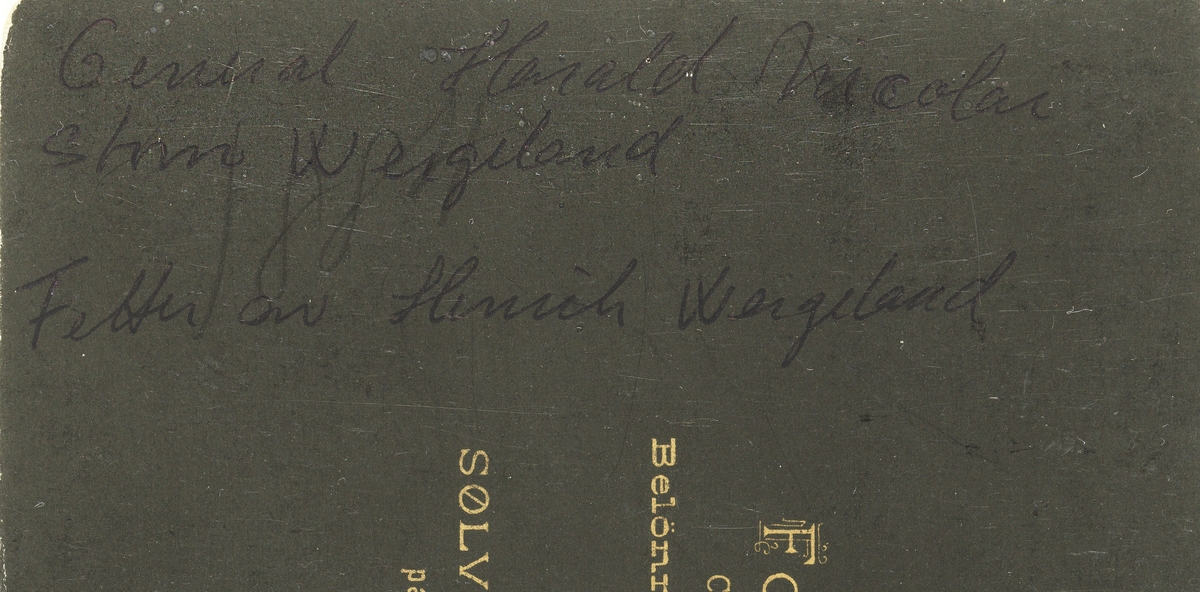 General Harald Nicolai
Storm Wergeland
Fetter av Henrich Wergeland
SØLV
Belönn